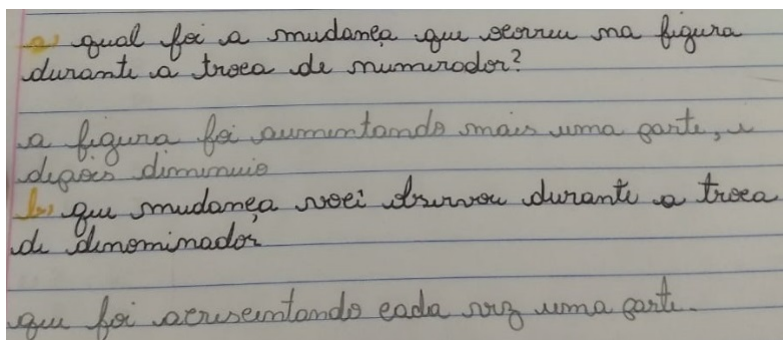 a) qual foi a mudança que ocorreu na figura
durante a troca de numerador?
a figura foi aumentando mais uma parte, e
depois diminuio
b) que mudança voei observou durante a troca
de denominador?
que foi acresentando cada vez uma parte.